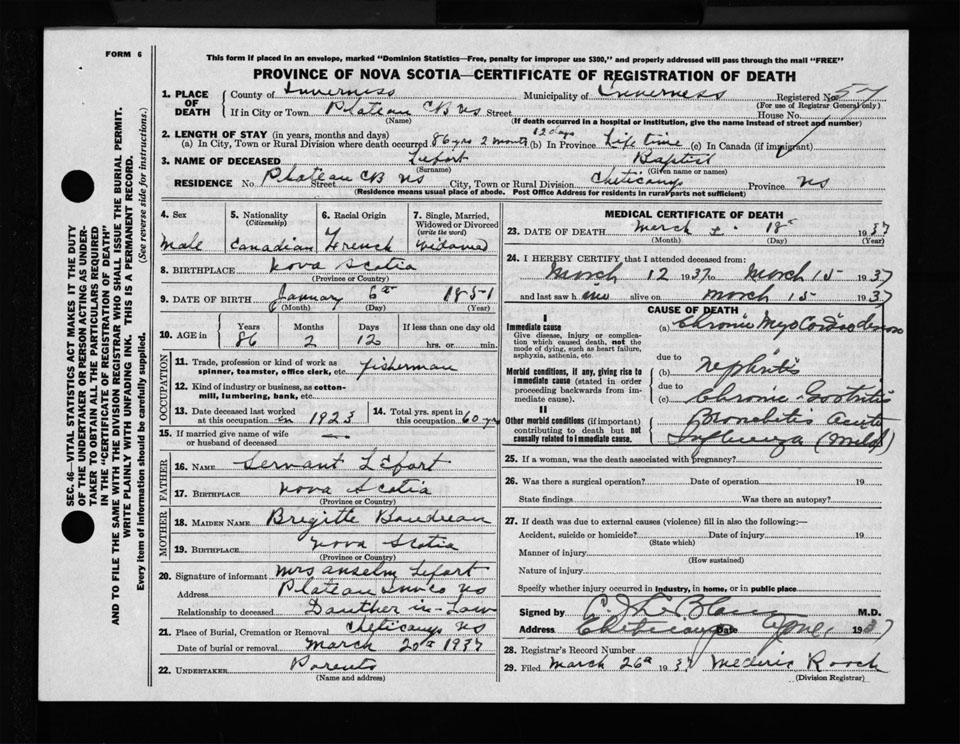 FORM 6
This form if placed in an envelope, marked "Dominion Statistics—Free, penalty for improper use $300," and properly addressed will pass through the mail "FREE"
PROVINCE OF NOVA SCOTIA—CERTIFICATE OF REGISTRATION OF DEATH
1. PLACE OF DEATH County of Inverness Municipality of Inverness Registered No. 57
(For use of Registrar General only)
If in City or Town Plateau CB NS Street House No.
(Name) (If death occurred in a hospital or institution, give the name instead of street and number)
2. LENGTH OF STAY (in years, months and days) 12 days
(a) In City, Town or Rural Division where death occurred 86 yrs 2 month (b) In Province Life time (c) In Canada (if immigrant)
3. NAME OF DECEASED Lefort Baptist
(Surname) (Given name or names)
RESIDENCE No. Plateau CB NS Street City, Town or Rural Division Cheticamp Province NS
(Residence means usual place of abode. Post Office Address for residents in rural parts not sufficient)
4. Sex
Male
5. Nationality (Citizenship)
Canadian
6. Racial Origin
French
7. Single, Married, Widowed or Divorced (write the word)
Widowed
8. BIRTHPLACE Nova Scotia
(Province or Country)
9. DATE OF BIRTH January 6th 1851
(Month) (Day) (Year)
10. AGE in Years Months Days If less than one day
86 2 12 hrs. or min.
OCCUPATION
11. Trade, profession or kind of work as spinner, teamster, office clerk, etc. fisherman
12. Kind of industry or business, as cotton-mill, lumbering, bank, etc.
13. Date deceased last worked at this occupation in 1923
14. Total yrs. spent in this occupation 60 yrs
15. If married give name of wife or husband of deceased —
FATHER
16. NAME Servant Lefort
17. BIRTHPLACE Nova Scotia
(Province or Country)
MOTHER
18. MAIDEN NAME Brigitte Boudreau
19. BIRTHPLACE Nova Scotia
(Province or Country)
20. Signature of informant Mrs Anselm Lefort
Address Plateau Inv Co NS
Relationship to deceased Dauther in-Law
21. Place of Burial, Cremation or Removal Cheticamp NS
Date of burial or removal March 20th 1937
22. UNDERTAKER Parents
(Name and address)
MEDICAL CERTIFICATE OF DEATH
23. DATE OF DEATH March 18th 1937
(Month) (Day) (Year)
24. I HEREBY CERTIFY that I attended deceased from:
March 12 1937 to March 15 1937
and last saw him alive on March 15 1937
CAUSE OF DEATH
I
Immediate cause
Give disease, injury or complication which caused death, not the mode of dying, such as heart failure, asphyxia, asthenia, etc.
(a) Chronic Myocardio
due to
Morbid conditions, if any, giving rise to immediate cause (stated in order proceeding backwards from immediate cause).
(b) Nephritis
due to
(c) Chronic
II
Other morbid conditions (if important) contributing to death but not causally related to immediate cause.
Bronchitis Acute
Influenza (Mild)
25. If a woman, was the death associated with pregnancy?
26. Was there a surgical operation? Date of operation 19
State findings Was there an autopsy?
27. If death was due to external causes (violence) fill in also the following:—
Accident, suicide or homicide? Date of injury 19
(State which)
Manner of injury
(How sustained)
Nature of injury
Specify whether injury occurred in industry, in home, or in public place
Signed by C J LeBlanc M.D.
Address Cheticamp Date 1937
28. Registrar's Record Number
29. Filed March 26th 1937 Mederic Roach
(Division Registrar)
SEC. 46—VITAL STATISTICS ACT MAKES IT THE DUTY
OF THE UNDERTAKER OR PERSON ACTING AS UNDER-
TAKER TO OBTAIN ALL THE PARTICULARS REQUIRED
IN THE "CERTIFICATE OF REGISTRATION OF DEATH"
AND TO FILE THE SAME WITH THE DIVISION REGISTRAR WHO SHALL ISSUE THE BURIAL PERMIT.
WRITE PLAINLY WITH UNFADING INK. THIS IS A PERMANENT RECORD.
Every item of information should be carefully supplied. (See reverse side for instructions.)